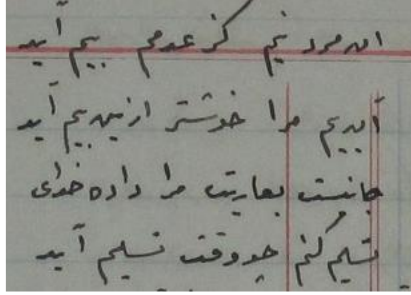 آن مرد نیم کز عدمم بیم آید
آن بیم مرا خوشتر ازین بیم آید
جانیست بعاریت مرا داده خدای
تسلیم کنم چو وقت تسلیم آید